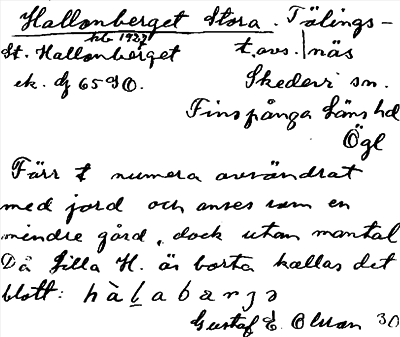 Hallonberget Stora. Tälings-
kb 1927
St. Hallonberget t. avs. näs
ek. bl 65 SO. Skedevi sn.
Finspånga läns hd
Ögl
Färr t numera användrat
med jord och anses som en
mindre gård, dock utan mantal
Då Lilla H. är borta kallas det
blott: hàlabarjə
Gustaf E. Olsson 30